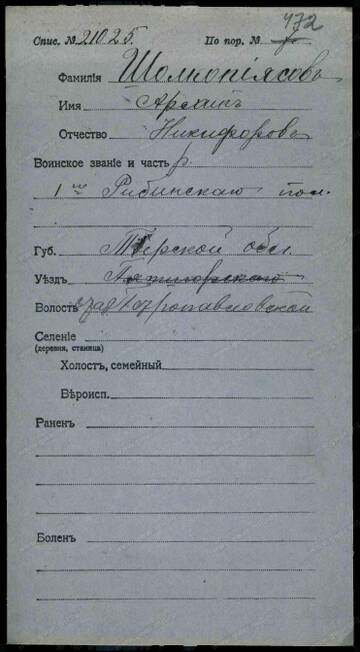 472
Спис. № 21025. По пор. №
Фамилія Шолмопіясовъ
Имя Архипъ
Отчество Никифоровъ
Воинское званіе и часть р.
1го Рибинскаго пол.
Губ. Терской обл.
Уѣздъ Пятигорскаго
Волость Петропавловской
Селеніе
(деревня, станица)
Холостъ, семейный
Вѣроисп.
Раненъ
Боленъ